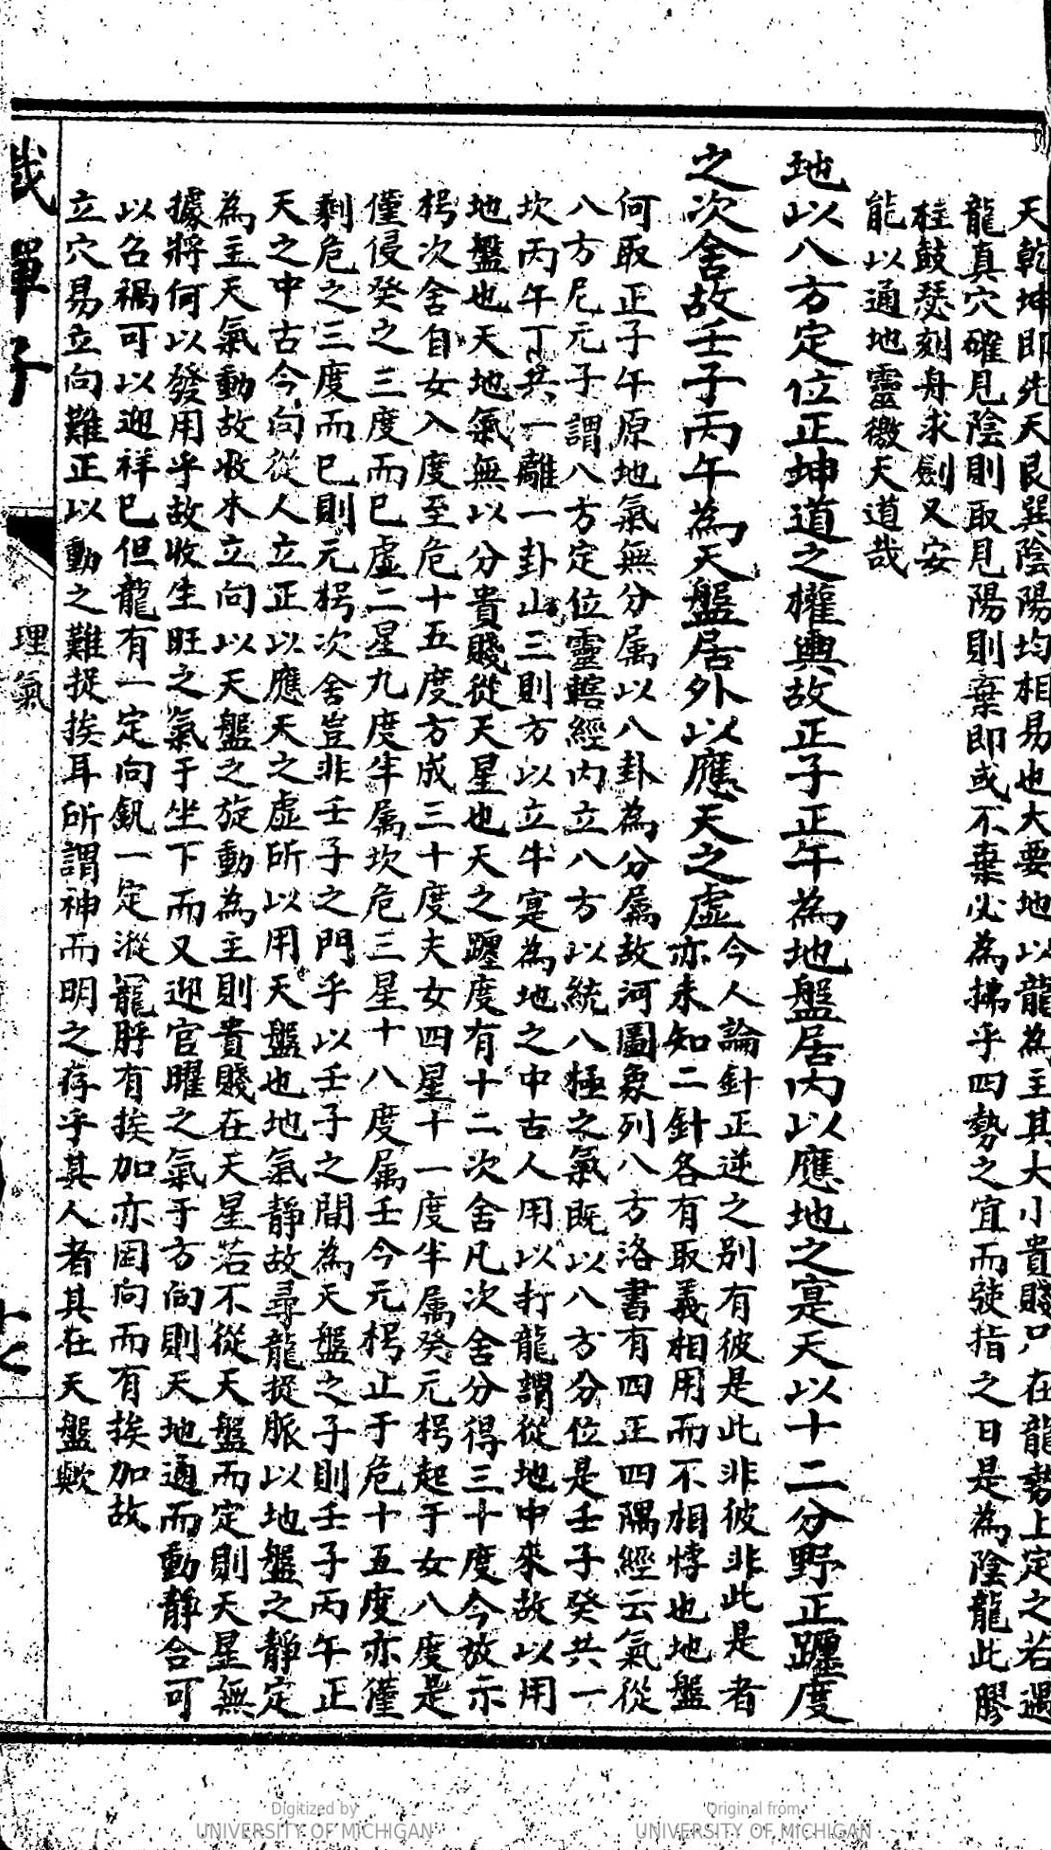 天乾坤即先天艮巽陰陽均相易也大要地以龍為主其大小貴賤只在龍勢上定之若遇
龍真穴確見陰則取見陽則棄即或不棄必為拂乎四勢之宜而駛指之曰是為陰龍此膠
柱鼓瑟刻舟求劍又安
能以通地靈徹天道哉
地以八方定位正坤道之權輿故正子正午為地盤居內以應地之寔天以十二分野正躔度
之次舍故壬子丙午為天盤居外以應天之虛
今人論針正逆之別有彼是此非彼非此是者
亦未知二針各有取義相用而不相悖也地盤
何取正子午原地氣無分属以八卦為分属故河圖象列八方洛書有四正四隅經云氣從
八方尼元子謂八方定位靈轄經內立八方以統八極之氣既以八方分位是壬子癸共一
坎丙午丁共一離一卦山三則方以立牛寔為地之中古人用以打龍謂從地中來故以用
地盤也天地氣無以分貴賤從天星也天之躔度有十二次舍凡次舍分得三十度今放示
枵次舍自女入度至危十五度方成三十度夫女四星十一度半属癸元枵起于女八度是
僅侵癸之三度而巳虛二星九度半属坎危三星十八度属壬今元枵止于危十五度亦僅
剩危之三度而巳則元枵次舍豈非壬子之門乎以壬子之間為天盤之子則壬子丙午正
天之中古今向從人立正以應天之虛所以用天盤也地氣靜故尋龍捉脈以地盤之靜定
為主天氣動故收水立向以天盤之旋動為主則貴賤在天星若不從天盤而定則天星無
據將何以發用乎故收生旺之氣于坐下而又迎官曜之氣于方向則天地通而動靜合可
以召禍可以迎祥巳但龍有一定向釩一定漎龍脬有挨加亦囯向而有挨加故
立穴易立向難正以動之難捉挨耳所謂神而明之存乎其人者其在天盤歟
彈子
理氣
十七
Digitized by
UNIVERSITY OF MICHIGAN
Original from
UNIVERSITY OF MICHIGAN